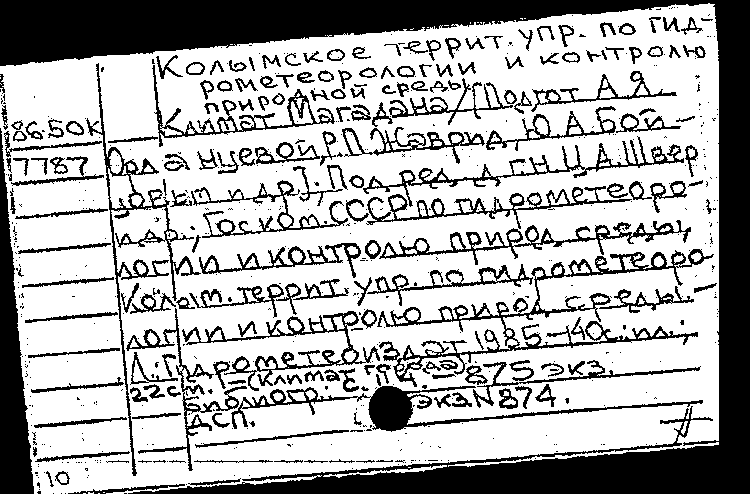 Колымское террит. упр. по гид-
рометеорологии и контролю
природной среды.
86.50К Климат Магадана / [Подгот А.Я.
7787 Орланцевой, Р.П. Жаврид, Ю.А. Бой-
цовым и др.]; Под ред. д.г.н. Ц.А. Швер
и др.; Гос. ком. СССР по гидрометеоро-
логии и контролю природ. среды,
Колым. террит. упр. по гидрометеоро-
логии и контролю природ. среды. -
Л.: Гидрометеоиздат, 1985. - 140с.: ил.;
22см. - (Климат города). - 875 экз.
Библиогр.: с. экз. N 874.
ДСП.
10